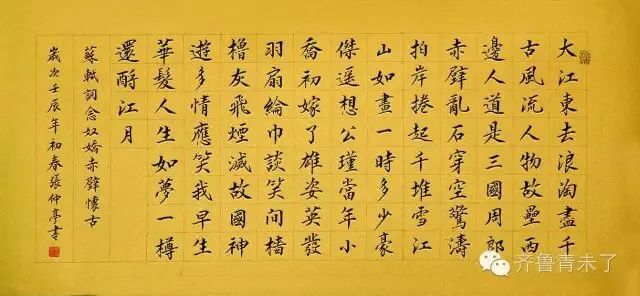 大江東去浪淘盡千
古風流人物故壘西
邊人道是三國周郎
赤壁亂石穿空驚濤
拍岸捲起千堆雪江
山如畫一時多少豪
傑遥想公瑾當年小
喬初嫁了雄姿英發
羽扇綸巾談笑間檣
櫓灰飛煙滅故國神
遊多情應笑我早生
華髮人生如夢一樽
還酹江月
蘇軾詞念奴嬌赤壁懷古
歲次壬辰年初春張仲亭書
齐鲁青未了